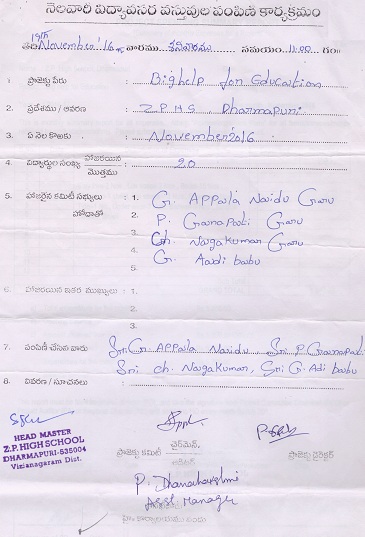 నెలవారి విద్యావసర వస్తువుల పంపిణీ కార్యక్రమం
తేది 19th November '16 వారము శనివారము సమయం 11:00 గం॥
1. ప్రాజెక్టు పేరు : Bighelp for Education
2. ప్రదేశము / ఆవరణ : Z.P.H.S Dharmapuri
3. ఏ నెల కొఱకు : November 2016
4. విద్యార్థుల సంఖ్య హాజరయిన మొత్తము : 20
5. హాజరైన కమిటీ సభ్యులు హోదాతో : 1. G. Appala Naidu Garu
2. P. Ganapati Garu
3. Ch. Nagakumar Garu
4. G. Aadi babu
5.
6. హాజరయిన ఇతర ముఖ్యులు : 1.
2.
3.
7. పంపిణీ చేసిన వారు : Sri G. Appala Naidu Sri P. Ganapati
Sri ch. Nagakumar, Sri G. Adi babu
8. వివరణ / సూచనలు :
HEAD MASTER
Z.P. HIGH SCHOOL
DHARMAPURI-535004
Vizianagaram Dist.
ప్రాజెక్టు కమిటీ ఛైర్మెన్,
ప్రాజెక్టు డైరెక్టర్
Asst Manager